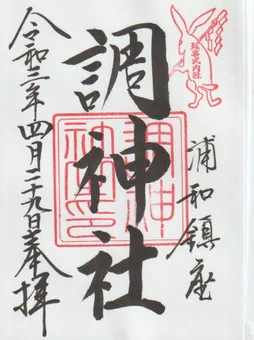 延喜式内社
浦和鎮座
調神社
調神社印
令和三年四月二十九日奉拝